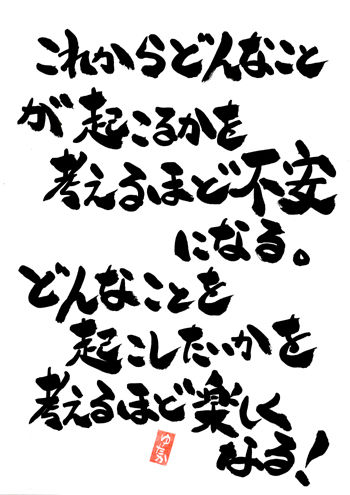 これからどんなこと
が起こるかを
考えるほど不安
になる。
どんなことを
起こしたいかを
考えるほど楽しく
なる!
ゆたか